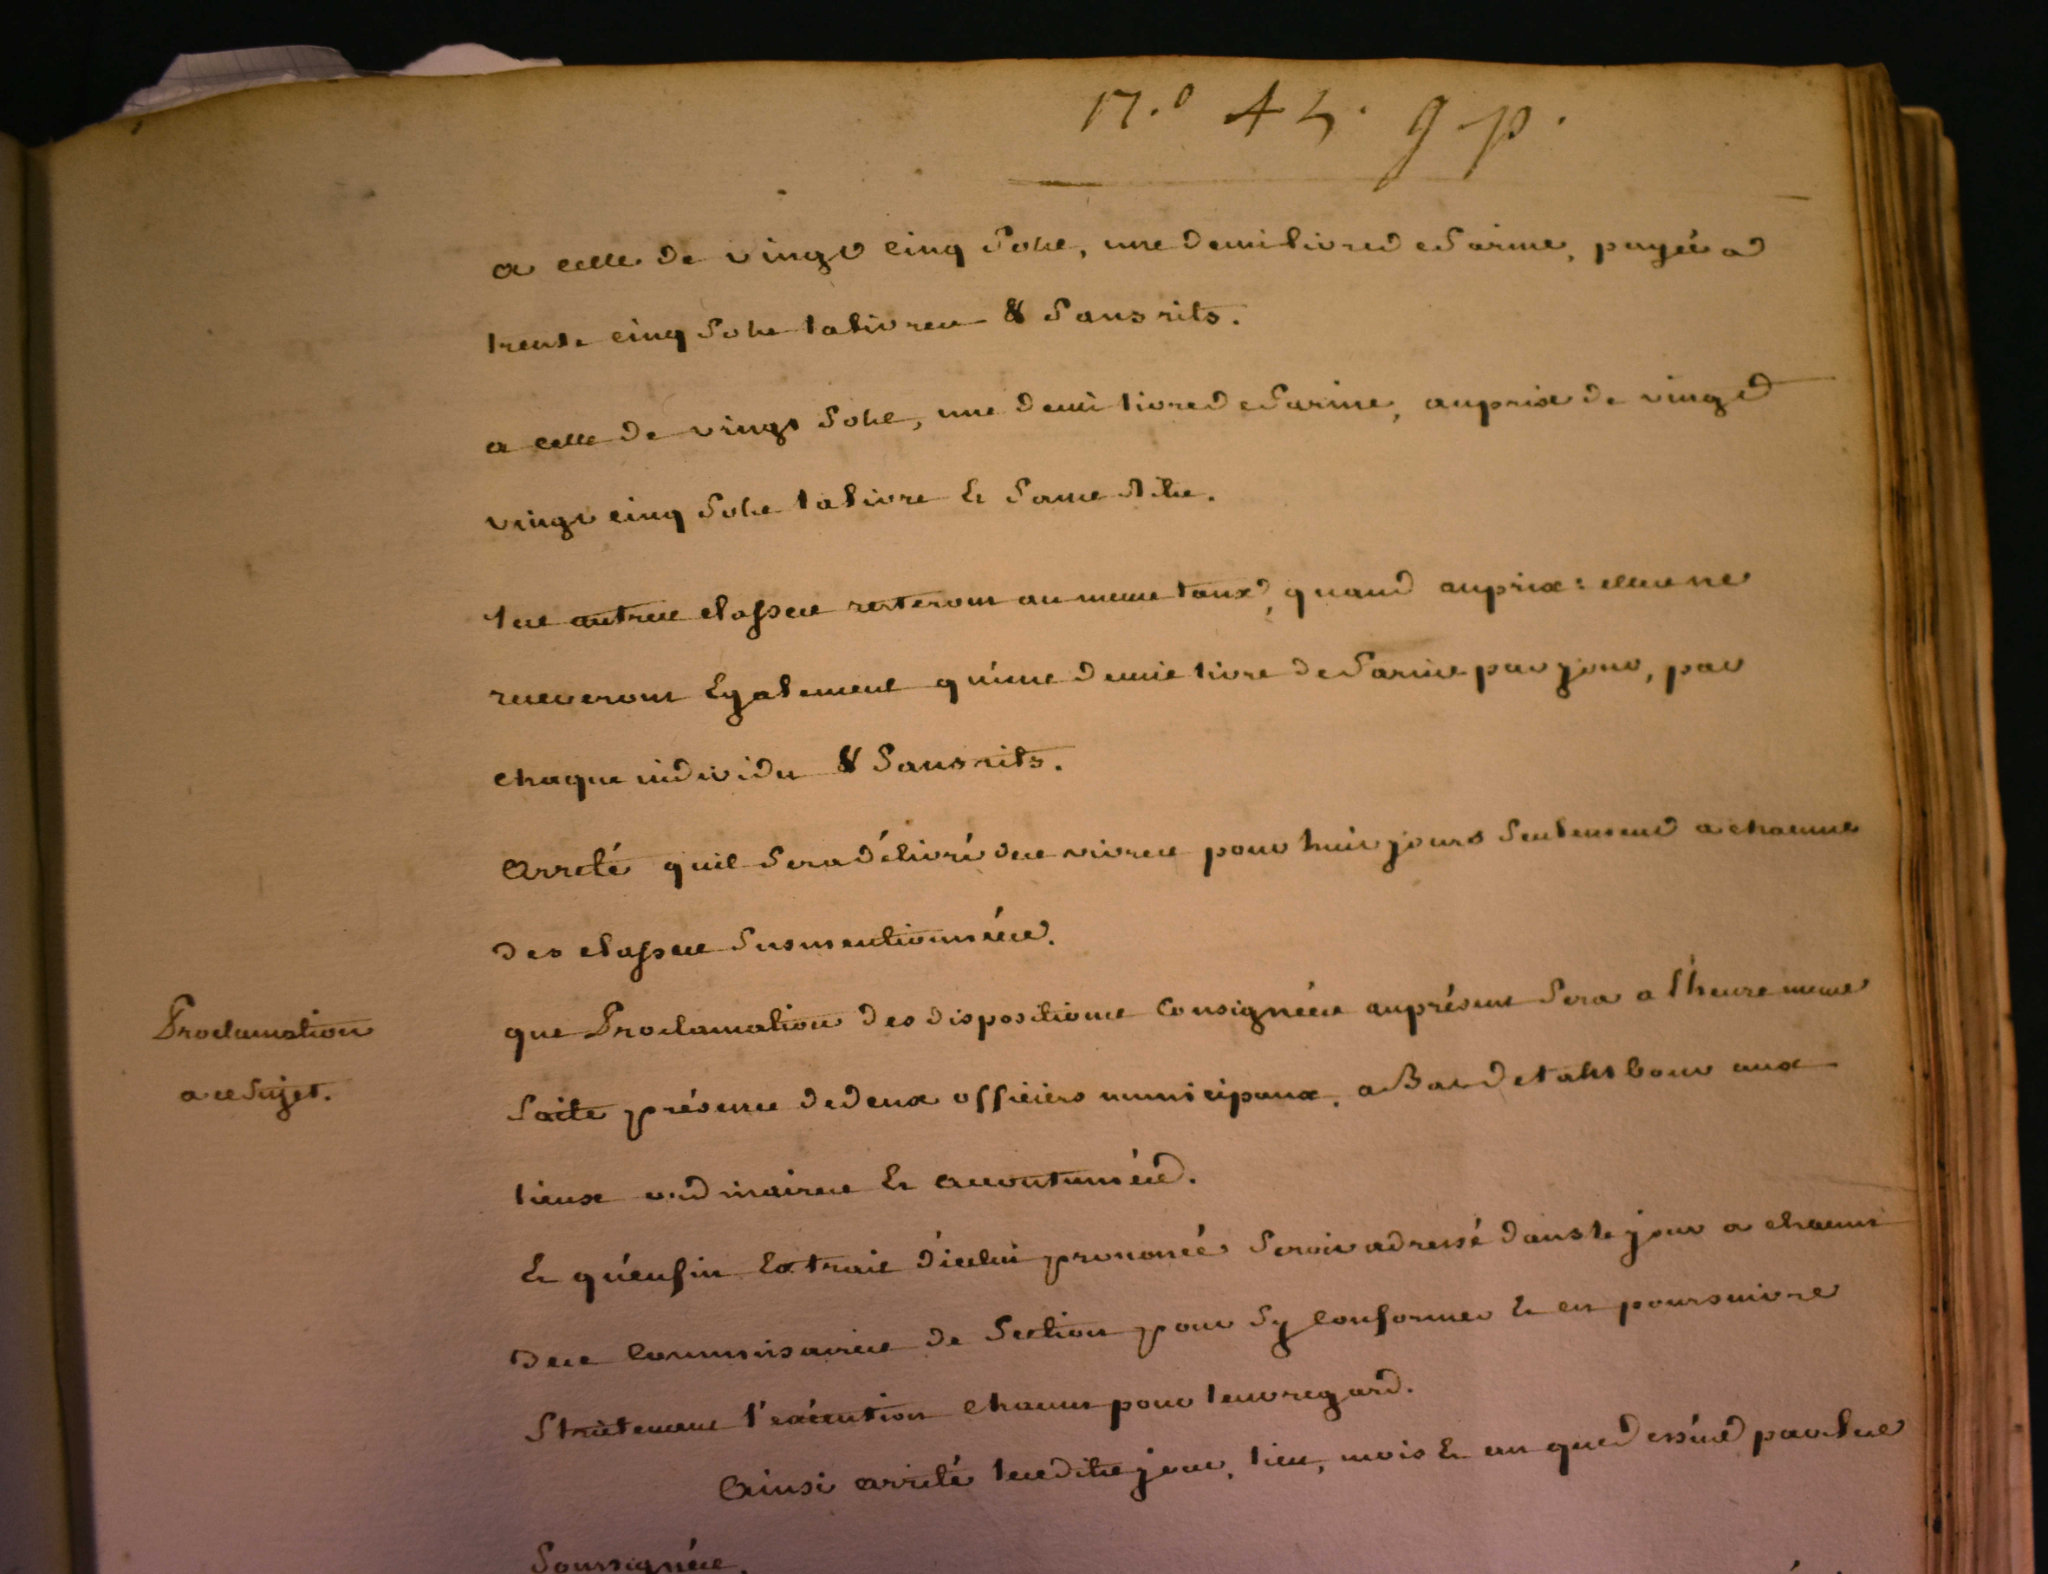 n.º 45. g p.
a celle de vingt cinq Sols, une demi livre de farine, payée a
trente cinq Sols la livre & Sans rits.
a celle de vingt Sols, une demi livre de farine, au prix de vingt
vingt cinq Sols la livre et Sans rits.
les autres classes resteront au meme taux, quand au prix: elles ne
receveront Egalement qu'une demie livre de farine par jour, par
chaque individu & Sans rits.
Arreté quil Sera délivré des vivres pour huit jours Seulement a chacune
des classes Susmentionnées.
Proclamation
a ce Sujet.
que Proclamation des dispositions Consignées au présent Sera a l'heure meme
faite présence de deux officiers municipaux, a Bat de tambour aux
lieux ordinaires et accoutumées.
Et qu'enfin Extrait d'icelui prononcé Seroit adressé dans le jour a chacun
des Commissaires de Section pour Sy Conformer et en poursuivre
Strictement l'exécution chacun pour leur regard.
Ainsi arreté lesdits jour, lieu, mois et an que dessus par les
Soussignés.